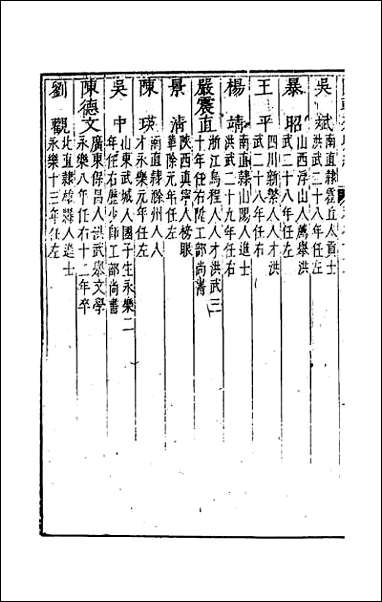 吳斌
南直隸霍丘人貢士
洪武二十八年任左
暴昭
山西浮山人薦舉洪
武二十八年任左
王平
四川新繁人人才洪
武二十八年任右
楊靖
南直隸山陽人進士
洪武二十九年任右
嚴震直
浙江烏程人人才洪武三
十年任右陞工部尚書
景清
陝西真寧人榜眼
革除元年任左
陳瑛
南直隸滁州人人
才永樂元年任左
吳中
山東武城人國子生永樂二
年任右歷少師工部尚書
陳德文
廣東保昌人洪武舉文學
永樂八年任右十二年卒
劉觀
北直隸雄縣人進士
永樂十三年任左